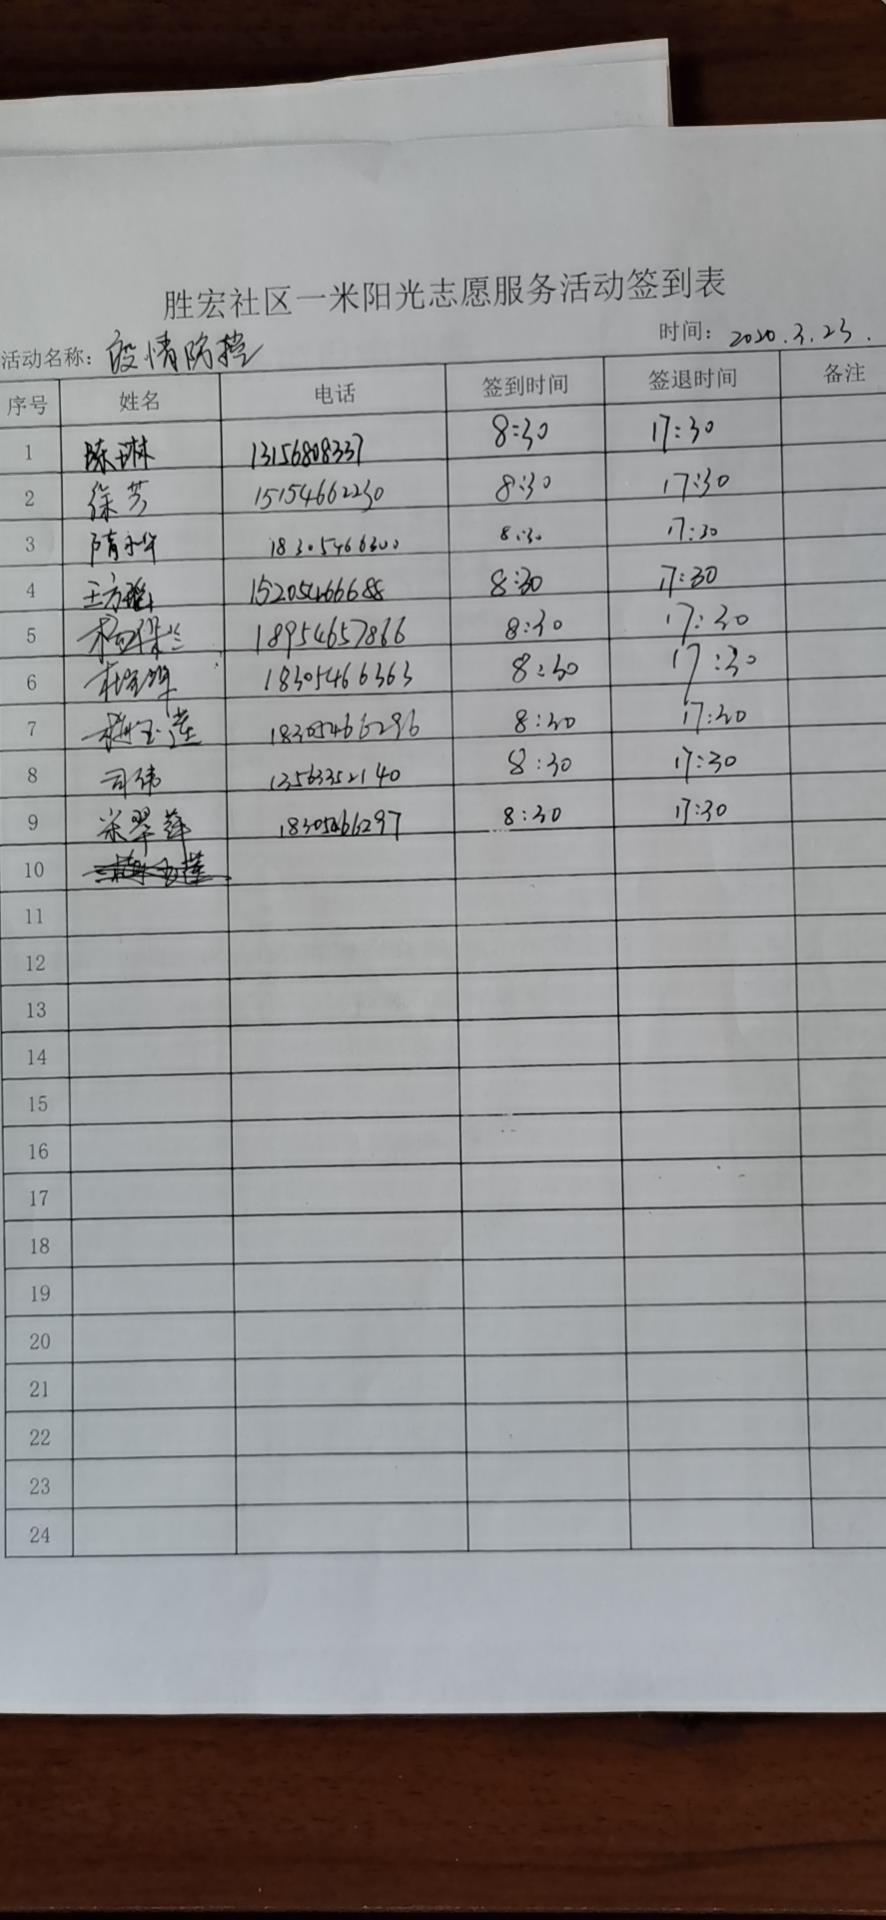 胜宏社区一米阳光志愿服务活动签到表
活动名称：疫情防控 时间：2020.3.23.
序号 姓名 电话 签到时间 签退时间 备注
1 陈琳 13156808337 8:30 17:30
2 徐芳 15154662230 8:30 17:30
3 隋永华 18305466300 8:30 17:30
4 王方 15205466688 8:30 17:30
5 杨保兰 18954657866 8:30 17:30
6 18305466363 8:30 17:30
7 梅玉莲 18305466296 8:30 17:30
8 司伟 13563352140 8:30 17:30
9 翠萍 18305466297 8:30 17:30
10
11
12
13
14
15
16
17
18
19
20
21
22
23
24